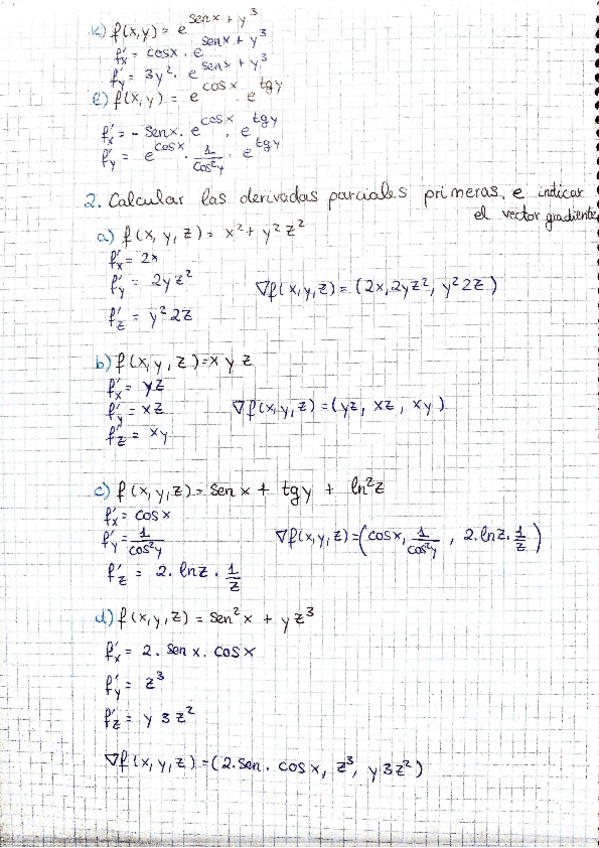 k) f(x,y) = e^(senx + y^3)
f'x = cosx · e^(senx + y^3)
f'y = 3y^2 · e^(senx + y^3)
l) f(x,y) = e^(cosx) · e^(tgy)
f'x = - senx · e^(cosx) · e^(tgy)
f'y = e^(cosx) · 1/cos^2y · e^(tgy)
2. Calcular las derivadas parciales primeras, e indicar
el vector gradiente,
a) f(x, y, z) = x^2 + y^2 z^2
f'x = 2x
f'y = 2yz^2
∇f(x,y,z) = (2x, 2yz^2, y^2 2z)
f'z = y^2 2z
b) f(x,y,z) = x y z
f'x = yz
f'y = xz
∇f(x,y,z) = (yz, xz, xy)
f'z = xy
c) f(x,y,z) = senx + tgy + ln^2z
f'x = cosx
f'y = 1/cos^2y
∇f(x,y,z) = (cosx, 1/cos^2y, 2·lnz·1/z)
f'z = 2·lnz·1/z
d) f(x,y,z) = sen^2x + yz^3
f'x = 2·senx·cosx
f'y = z^3
f'z = y3z^2
∇f(x,y,z) = (2·sen·cosx, z^3, y3z^2)